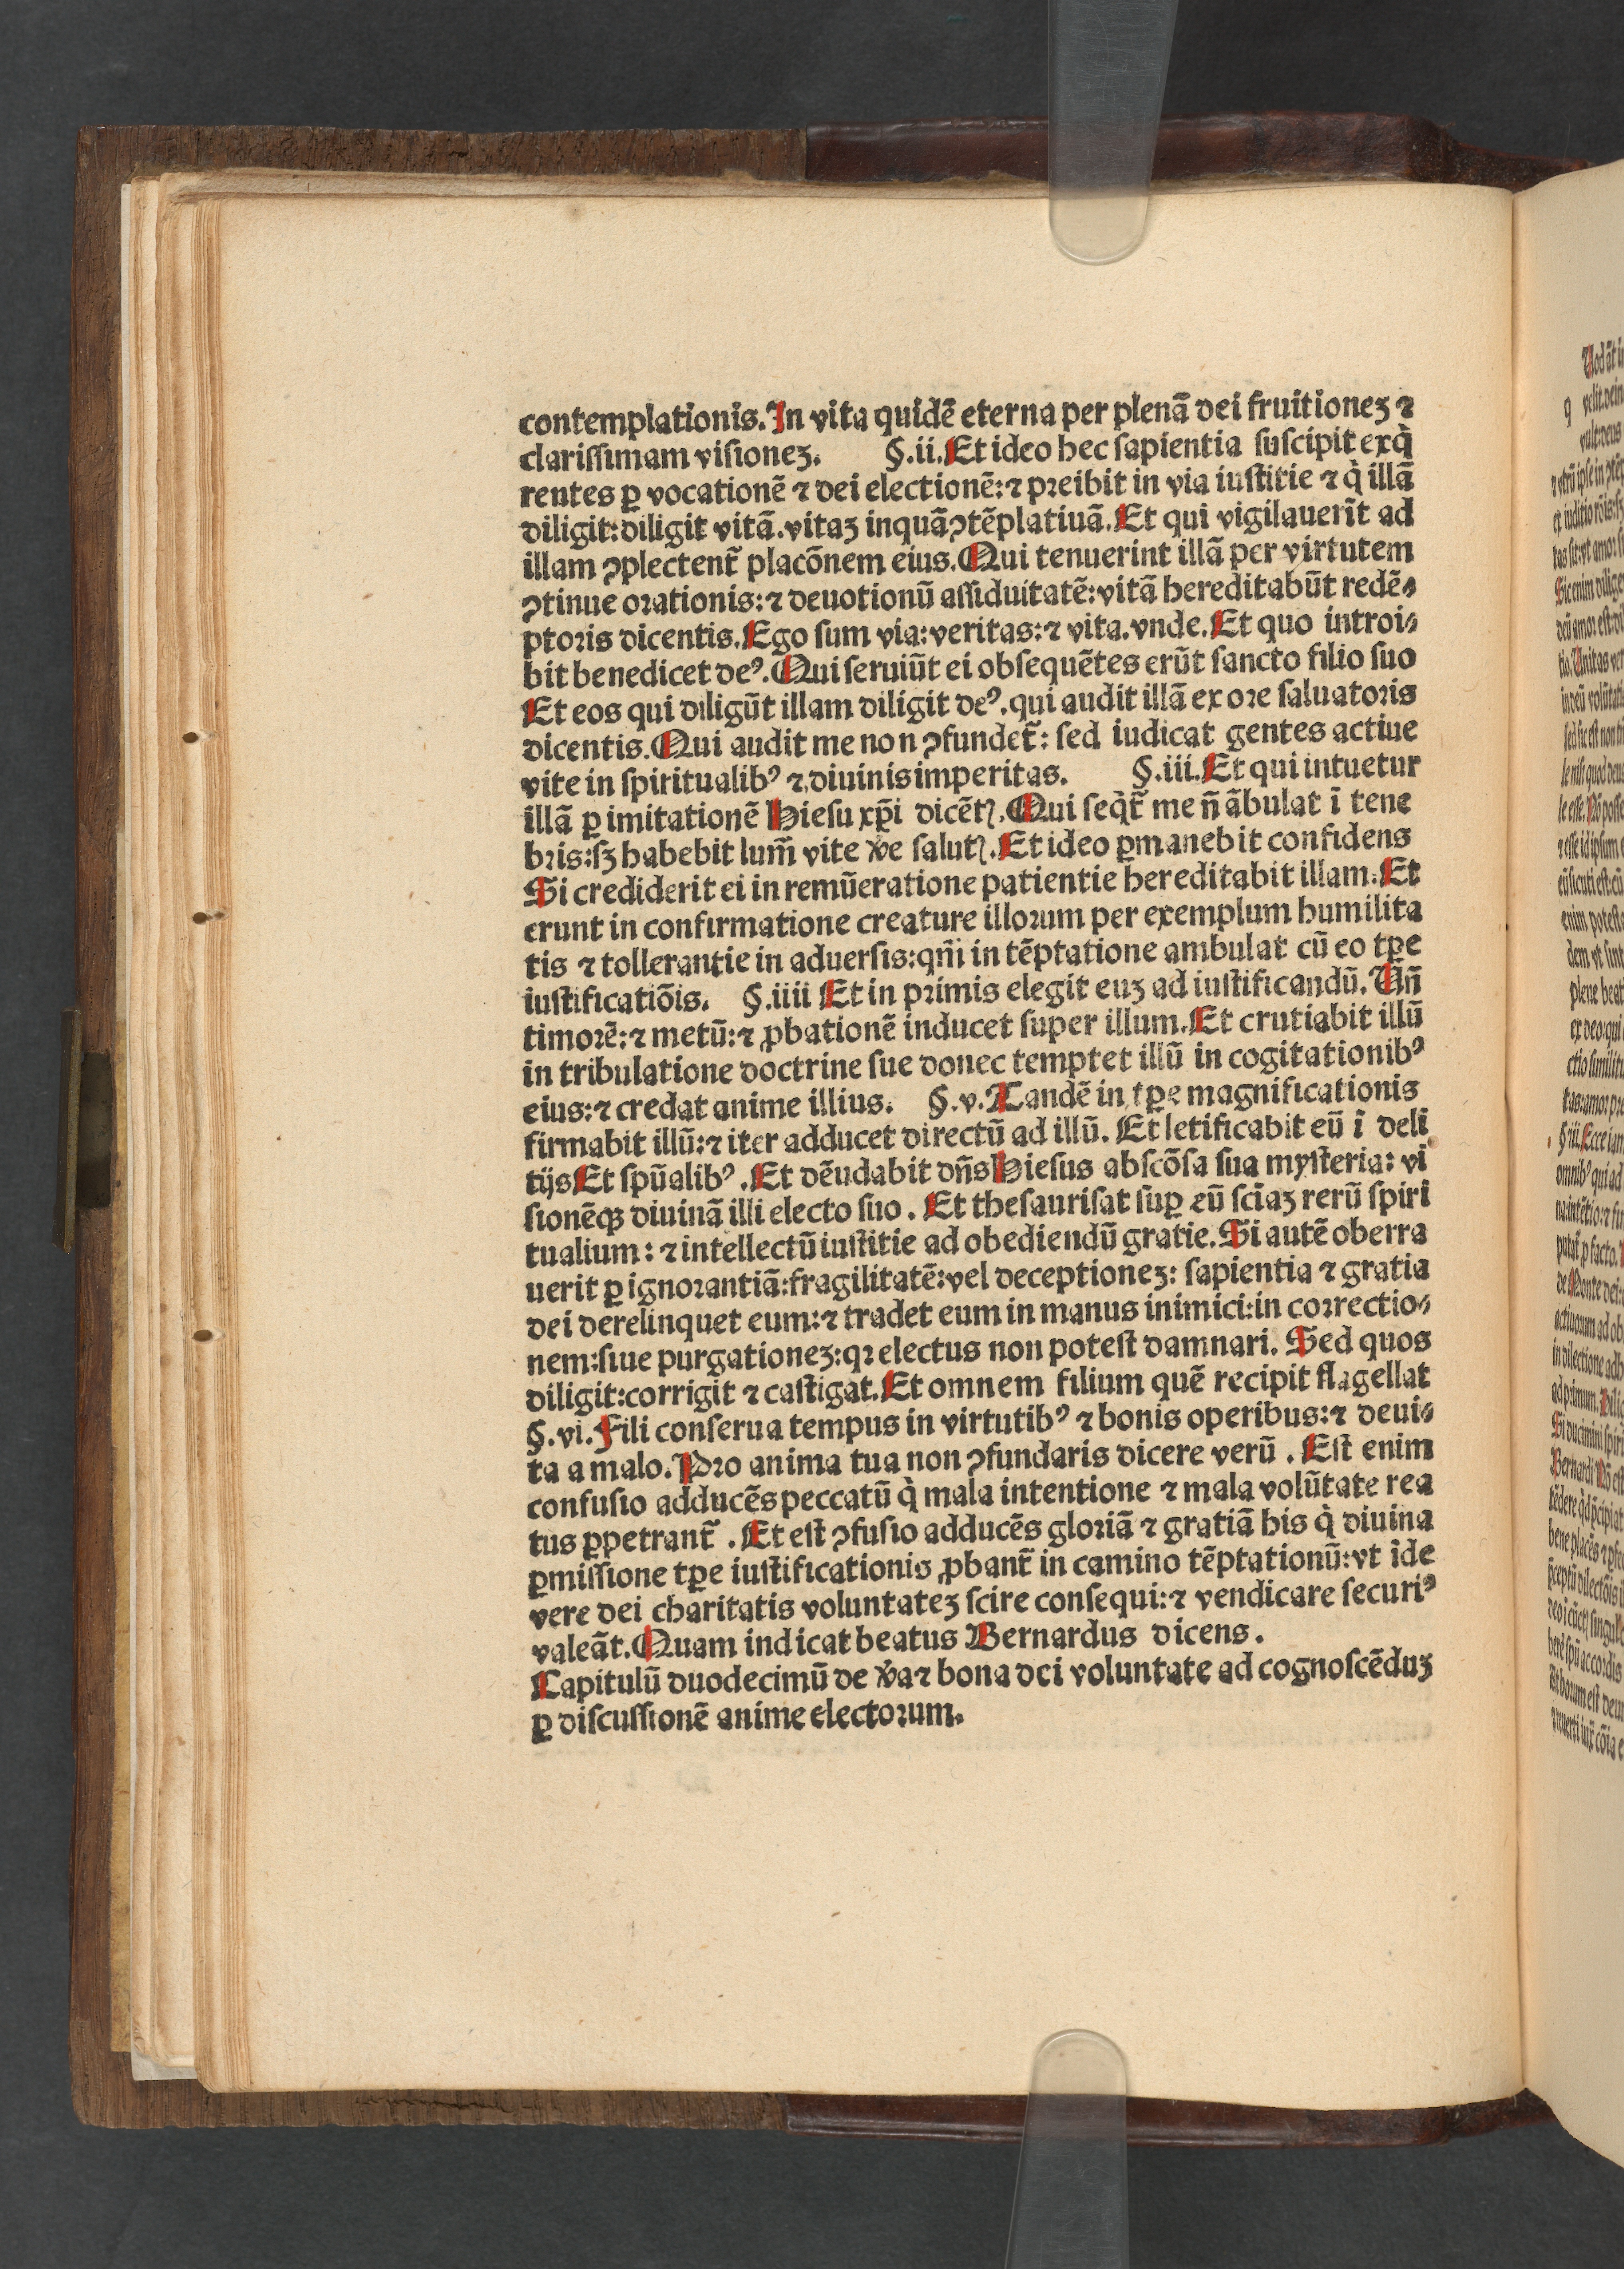 contemplationis. In vita quidē eterna per plenā dei fruitioneꝫ ⁊
clarissimam visioneꝫ. §.ii. Et ideo hec sapientia suscipit exq̇
rentes ꝑ vocationē ⁊ dei electionē: ⁊ preibit in via iustitie ⁊ q̇ illā
diligit: diligit vitā. vitaꝫ inquā ꝯtēplatiuā. Et qui vigilauerīt ad
illam ꝯplectent̄ placōnem eius. Qui tenuerint illā per virtutem
ꝯtinue orationis: ⁊ deuotionū assiduitatē: vitā hereditabūt redē⸗
ptoris dicentis. Ego sum via: veritas: ⁊ vita. vnde. Et quo introi⸗
bit benedicet deꝰ. Qui seruiūt ei obsequētes erūt sancto filio suo
Et eos qui diligūt illam diligit deꝰ. qui audit illā ex ore saluatoris
dicentis. Qui audit me non ꝯfundet̄: sed iudicat gentes actiue
vite in spiritualibꝰ ⁊ diuinis imperitas. §.iii. Et qui intuetur
illā ꝑ imitationē Hiesu xp̄i dicētꝭ. Qui seq̇t̄ me n̄ ābulat ī tene
bris: sꝫ habebit lum̄ vite v̾e salutꝭ. Et ideo ꝑmanebit confidens
Si crediderit ei in remūeratione patientie hereditabit illam. Et
erunt in confirmatione creature illorum per exemplum humilita
tis ⁊ tollerantie in aduersis: qm̄ in tēptatione ambulat cū eo tꝑe
iustificatiōis. §.iiii Et in primis elegit euꝫ ad iustificandū. Un̄
timorē: ⁊ metū: ⁊ ꝓbationē inducet super illum. Et crutiabit illū
in tribulatione doctrine sue donec temptet illū in cogitationibꝰ
eius: ⁊ credat anime illius. §.v. Tandē in tꝑe magnificationis
firmabit illū: ⁊ iter adducet directū ad illū. Et letificabit eū ī deli
tijs Et spūalibꝰ. Et dēudabit dn̄s Hiesus abscōsa sua mysteria: vi
sionēqꝫ diuinā illi electo suo. Et thesaurisat suꝑ eū sciaꝫ rerū spiri
tualium: ⁊ intellectū iustitie ad obediendū gratie. Si autē oberra
uerit ꝑ ignorantiā: fragilitatē: vel deceptioneꝫ: sapientia ⁊ gratia
dei derelinquet eum: ⁊ tradet eum in manus inimici: in correctio⸗
nem: siue purgationeꝫ: qꝛ electus non potest damnari. Sed quos
diligit: corrigit ⁊ castigat. Et omnem filium quē recipit flagellat
§.vi. Fili conserua tempus in virtutibꝰ ⁊ bonis operibus: ⁊ deui⸗
ta a malo. Pro anima tua non ꝯfundaris dicere verū. Est enim
confusio adducēs peccatū q̇ mala intentione ⁊ mala volūtate rea
tus ꝑpetrant̄. Et est ꝯfusio adducēs gloriā ⁊ gratiā his q̇ diuina
ꝑmissione tꝑe iustificationis ꝓbant̄ in camino tēptationū: vt īde
vere dei charitatis voluntateꝫ scire consequi: ⁊ vendicare securiꝰ
valeāt. Quam indicat beatus Bernardus dicens.
Capitulū duodecimū de v̾a ⁊ bona dei voluntate ad cognoscēduꝫ
ꝑ discussionē anime electorum.